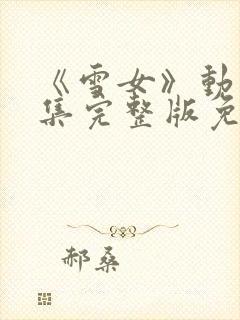 《雪女》動
集完整版免
郝桑